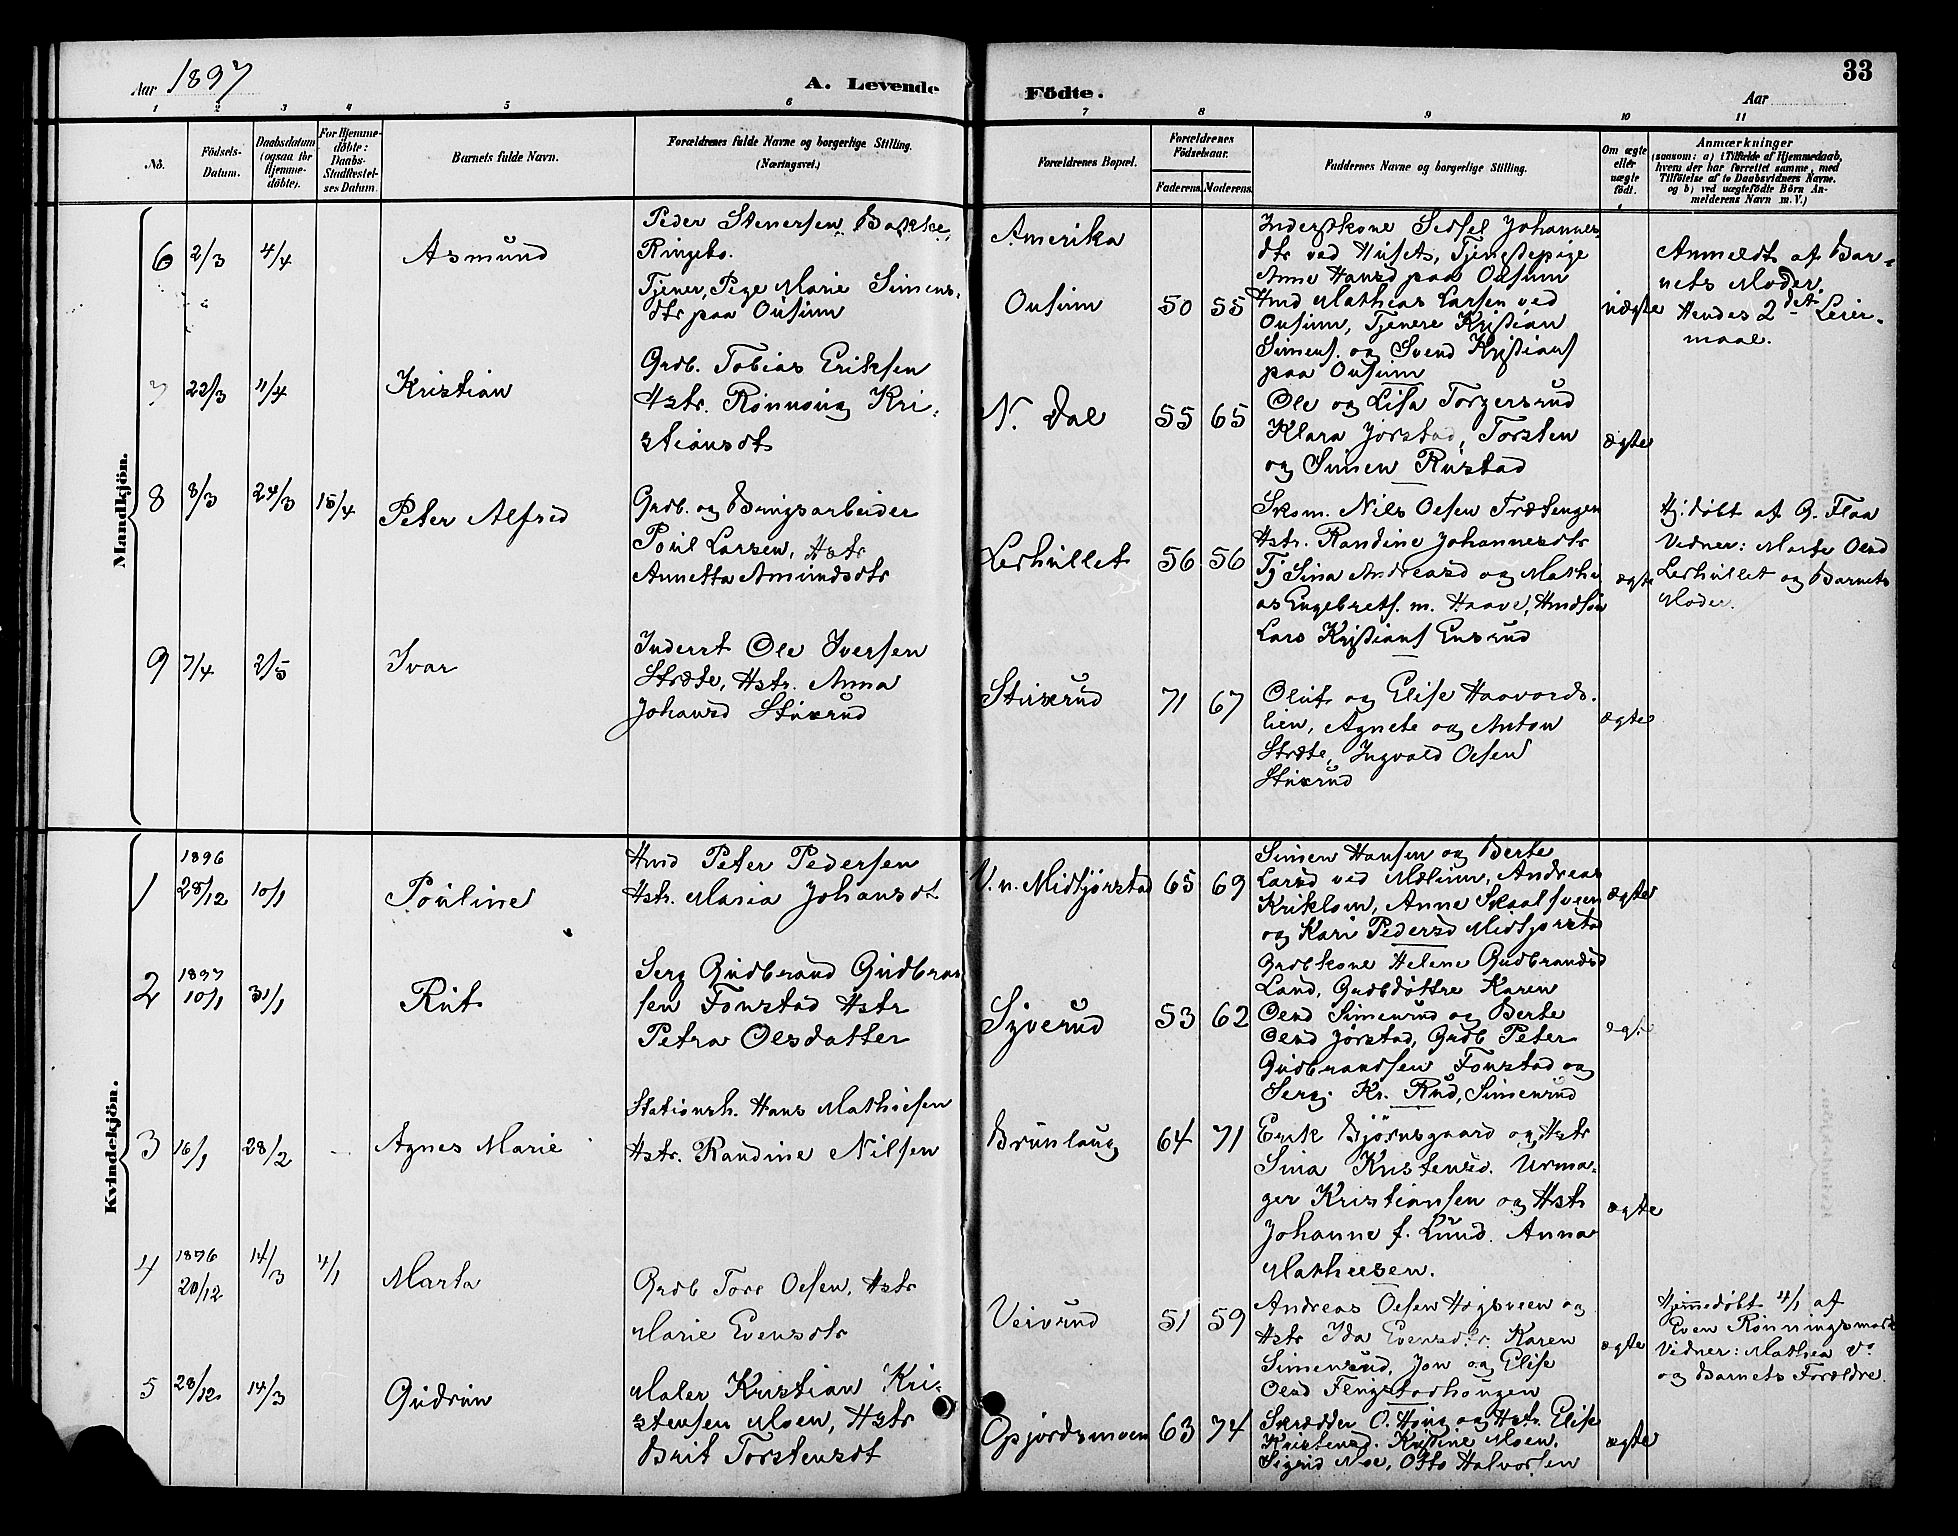 Aar 1897
A. Levende
Födte.
Aar
33
1 2 3 4 5 6 7 8 9 10 11
No.
Födsels-
Datum.
Daabsdatum
(ogsaa for
Hjemme-
döbte).
For Hjemme-
döbte:
Daabs-
Stadfæstel-
ses Datum.
Barnets fulde Navn.
Forældrenes fulde Navne og borgerlige Stilling.
(Næringsvei.)
Forældrenes Bopæl.
Forældrenes
Födselsaar.
Faderens. Moderens.
Faddernes Navne og borgerlige Stilling.
Om ægte
eller
uægte
født.
Anmærkninger
(saasom: a) i Tilfælde af Hjemmedaab,
hvem der har forrettet samme, med
Tilföielse af to Daabsvidners Navne.
og b) ved uægtefödte Börn An-
melderens Navn m. V.)
Mandkjön.
6 2/3 4/4 Asmund
Peder Stenersen Bakke,
Ringebo.
Tjener, Pige Marie Simens-
dtr paa Ousum
Amerika
Ousum 50 55
Inderstkone Sidsel Johannes-
dtr ved Huset, Tjenestepige
Anne Hansd paa Ousum
Hmd Mathias Larsen ved
Ousum, Tjenere Kristian
Simens. og Svend Kristians
paa Ousum
uægte
Anmeldt af Bar-
nets Moder.
Hendes 2det Leier-
maal.
7 22/3 11/4 Kristian
Grdb. Tobias Eriksen
Hstr. Rønnaug Kri-
stiansdt
N. Dal 55 65
Ole og Lisa Torgersrud
Klara Jørstad, Torsten
og Simen Rustad
ægte
8 8/3 24/3 15/4 Peter Alfred
Grdb. og Brugsarbeider
Poul Larsen, Hstr
Annetta Amundsdtr
Lerhullet 56 56
Skom. Nils Olsen Trætengen
Hstr. Randine Johannesdtr
Tj Sina Andreasd og Mathi
as Engebrets. m. Haave, Hmdsøn
Lars Kristians Ensrud
ægte
Hj.døbt af G. Flaa
Vidner: Marte Olsd
Lerhullet og Barnets
Moder.
9 7/4 2/5 Ivar
Inderst Ole Iversen
Stræte, Hstr. Anna
Johansd Stuxrud
Stuxrud 71 67
Oluf og Elise Haavords-
lien, Agnete og Anton
Stræte, Ingvald Olsen
Stuxrud
ægte
Kvindekjön.
1 1896 28/12 10/1 Pouline
Hmd Peter Pedersen
Hstr. Maria Johansdt
V. n. Midtjørstad 65 69
Simen Hansen og Berte
Larsd ved Mælum, Andreas
Kriklom, Anne Skaalsveen
og Kari Pedersd Midtjørstad
ægte
2 1897 10/1 31/1 Rut
Serg Gudbrand Gudbran
sen Fonstad Hstr
Petra Olsdatter
Syverud 53 62
Grdbkone Helene Gudbrandsd
Lund, Grdbdøttre Karen
Olsd Simenrud og Berte
Olsd Jørstad, Grdb Peter
Gudbrandsen Fonstad og
Serg. Kr. Rud, Simenrud
ægte
3 16/1 28/2 Agnes Marie
Stationsh. Hans Mathiesen
Hstr. Randine Nilsen
Brunlaug 64 71
Erik Bjørnsgaard og Hstr
Sina Kristensd. Urma-
ger Kristiansen og Hstr
Johanne f. Lund. Anna
Mathiesen.
ægte
4 1896 20/12 14/3 4/1 Marta
Grdb Tore Olsen, Hstr
Marie Evensdtr
Veivrud 51 59
Andreas Olsen Høgsveen og
Hstr Ida Evensdtr. Karen
Simensrud, Jon og Elise
Olsd Flugstadhougen
ægte
Hjemmedøbt 4/1 af
Even Rønningsmoen
Vidner: Mathea
og Barnets Forældre.
5 28/12 14/3 Gudrun
Maler Kristian Kri-
stensen Moen, Hstr
Brit Torstensdt
Opjordsmoen 63 74
Skrædder O. Haug og Hstr. Elise
Kristensd. Kristine Moen.
Sigrid Moe, Otto Halvorsen
ægte